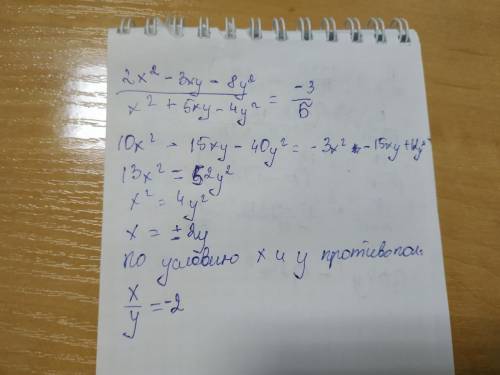 2x² - 3xy - 8y² / x² + 5xy - 4y² = -3/5
10x² - 15xy - 40y² = -3x² - 15xy + 12y²
13x² = 52y²
x² = 4y²
x = ± 2y
по условию x и y противопол.
x/y = -2